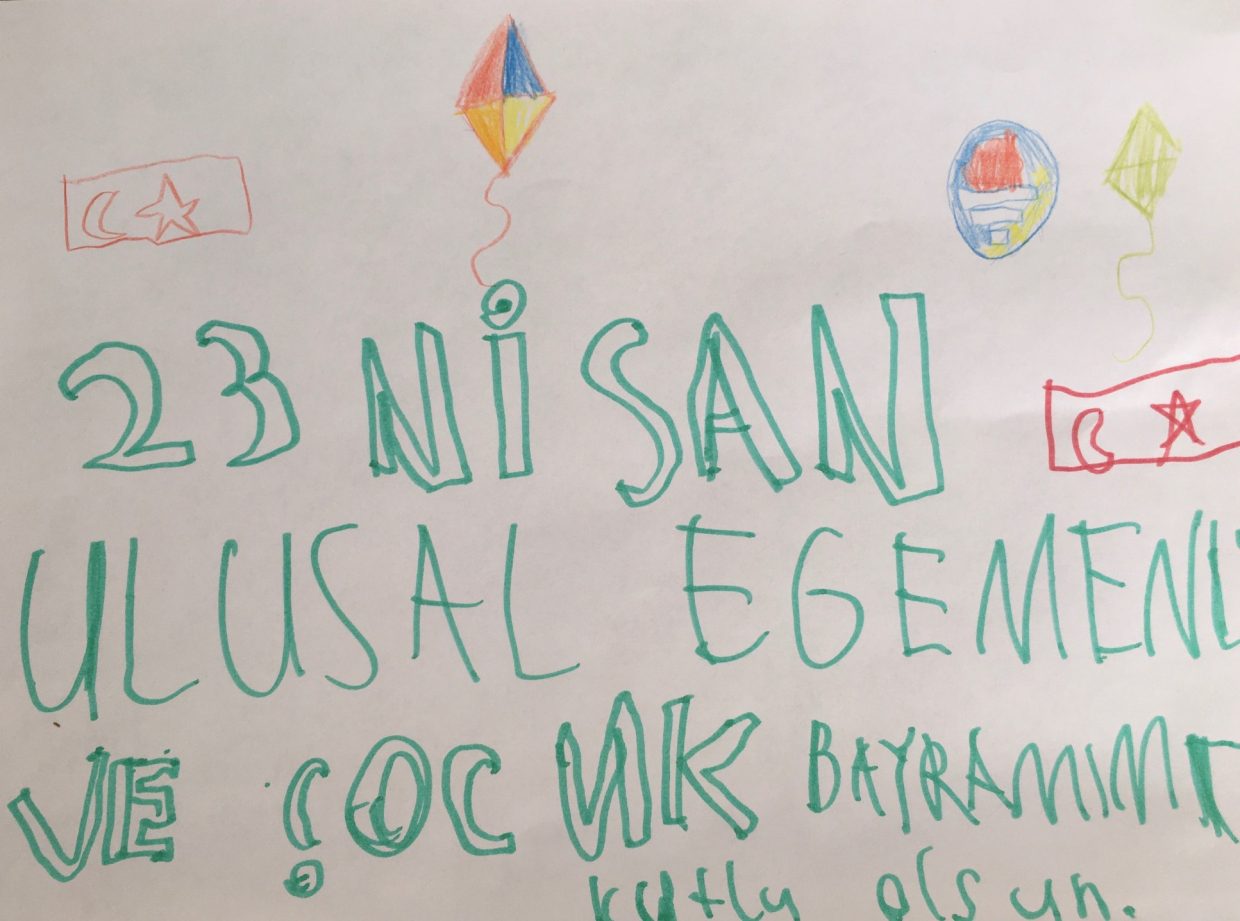 23 NİSAN
ULUSAL EGEMENL
VE ÇOCUK BAYRAMIMI
kutlu olsun.